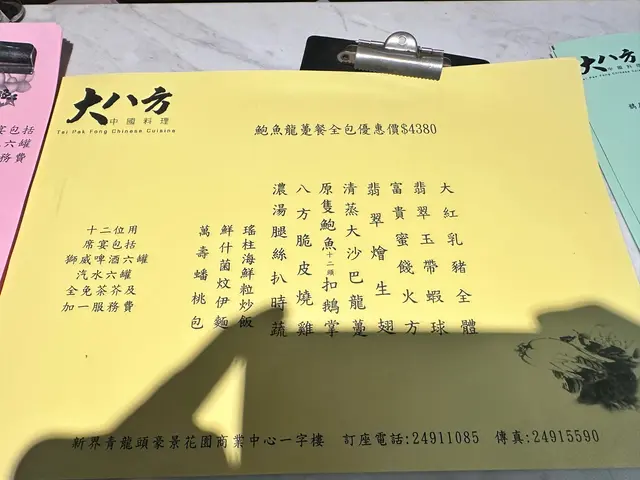 大八方
中國料理
Tai Pak Fong Chinese Cuisine
鮑魚龍躉餐全包優惠價$4380
大紅乳豬全體
翡翠玉帶蝦球
富貴蜜餞火方
翡翠燴生翅
清蒸大沙巴龍躉
原隻鮑魚十二頭扣鵝掌
八方脆皮燒雞
濃湯腿絲扒時蔬
瑤柱海鮮粒炒飯
鮮什菌炆伊麵
萬壽蟠桃包
十二位用
席宴包括
獅威啤酒六罐
汽水六罐
全免茶芥及
加一服務費
新界青龍頭豪景花園商業中心一字樓 訂座電話:24911085 傳真:24915590
宴包括
六罐
務費